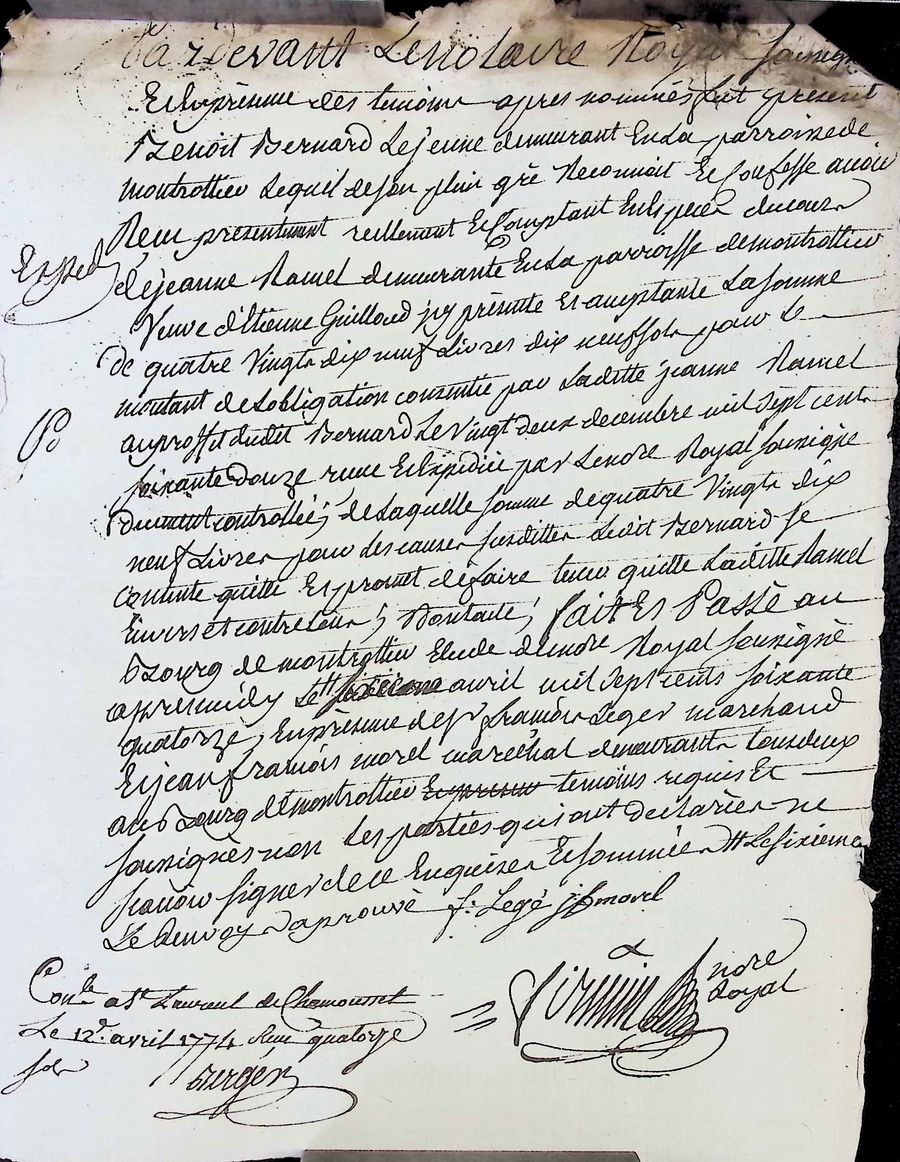 Pardevant Le notaire Royal soussigné
Et En présence des temoins apres nommés fut present
Benoit Bernard Le jeune demeurant En La parroisse de
montrottier Lequel de son plein gré Reconnoit Et Confesse avoir
Reçu presentement reellement Et Comptant En Especes du cours
Exped
de jeanne Ramel demeurante En La parroisse de montrottier
Veuve d'Etienne Guilloud jcy présente Et acceptante La somme
de quatre Vingts dix neuf Livres dix neuf sols pour Le
montant de Lobligation consentie par Laditte jeanne Ramel
au proffit dudit Bernard Le Vingt deux decembre mil Sept cents
soixante Douze reçue Et Expédiée par Le nore Royal soussigné
Duement controllée; de Laquelle somme de quatre Vingts dix
neuf Livres pour Les causes susdittes Ledit Bernard se
contente quitte Et promet de faire tenir quitte Laditte Ramel
Envers et contre tous; Dont acte; fait Et Passé au
Bourg de montrottier Etude du nore Royal soussigné
apres midy Le # avril mil Sept cents soixante
quatorze, En présence de sr françois Leger marchand
Et jean françois morel maréchal demeurants tous deux
au Bourg de montrottier temoins requis Et
soussignés non Les parties qui ont declarées ne
sçavoir signer de ce Enquises Et sommées # Le sixieme
Le Renvoy aprouvé f. Legé jf morel
Conlé a St Laurent de Chamousset
Le 12e avril 1774 Reçu quatorze
sols
nore
Royal